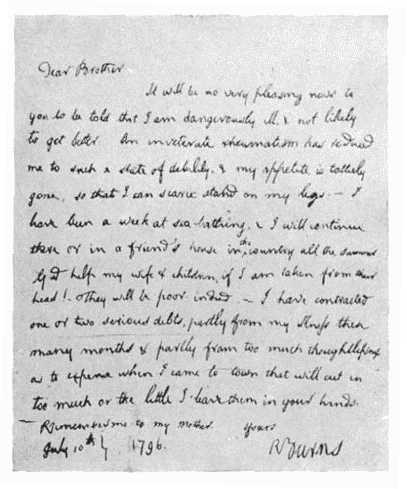 Dear Brother
It will be no very pleasing news to
you to be told that I am dangerously ill & not likely
to get better. An inveterate rheumatism has reduced
me to such a state of debility, & my appetite is totally
gone, so that I can scarce stand on my legs. — I
have been a week at sea-bathing, & I will continue
there or in a friend's house in the country all the summer
God help my wife & children, if I am taken from their
head! — They will be poor indeed. — I have contracted
one or two serious debts, partly from my illness these
many months & partly from too much thoughtlessness
as to expense when I came to town that will cut in
too much on the little I leave them in your hands.
Remember me to my mother. Yours
July 10th 1796. RBurns